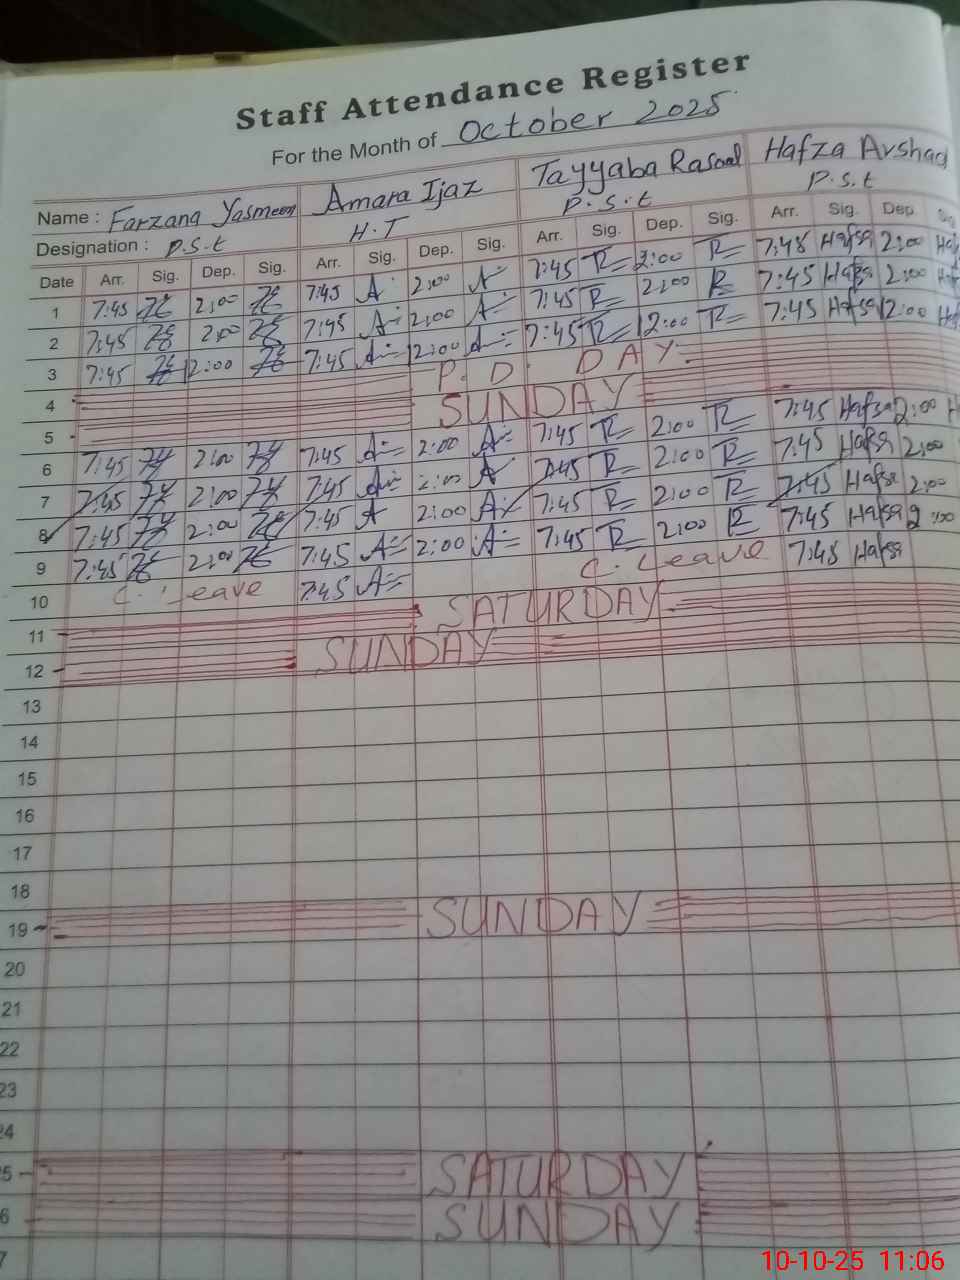 Staff Attendance Register
For the Month of October 2025
Name : Farzana Yasmeen Amara Ijaz Tayyaba Rasool Hafza Arshad
Designation : P.S.t H.T P.S.t P.S.t
Date Arr. Sig. Dep. Sig. Arr. Sig. Dep. Sig. Arr. Sig. Dep. Sig. Arr. Sig. Dep. Sig
1 7:45 2:00 7:45 A 2:00 A 7:45 R 2:00 R 7:45 Hafsa 2:00
2 7:45 2:00 7:45 A 2:00 A 7:45 R 2:00 R 7:45 Hafsa 2:00
3 7:45 12:00 7:45 12:00 7:45 R 12:00 R 7:45 Hafsa 12:00
4 P.D. DAY
5 SUNDAY
6 7:45 2:00 7:45 A 2:00 A 7:45 R 2:00 R 7:45 Hafsa 2:00 H
7 7:45 2:00 7:45 2:00 A 7:45 R 2:00 R 7:45 Hafsa 2:00
8 7:45 2:00 7:45 A 2:00 A 7:45 R 2:00 R 7:45 Hafsa 2:00
9 7:45 2:00 7:45 A 2:00 A 7:45 R 2:00 R 7:45 Hafsa 2:00
10 C. Leave 7:45 A C. Leave 7:45 Hafsa
11 SATURDAY
12 SUNDAY
13
14
15
16
17
18
19 SUNDAY
20
21
22
23
24
5 SATURDAY
6 SUNDAY
7
10-10-25 11:06